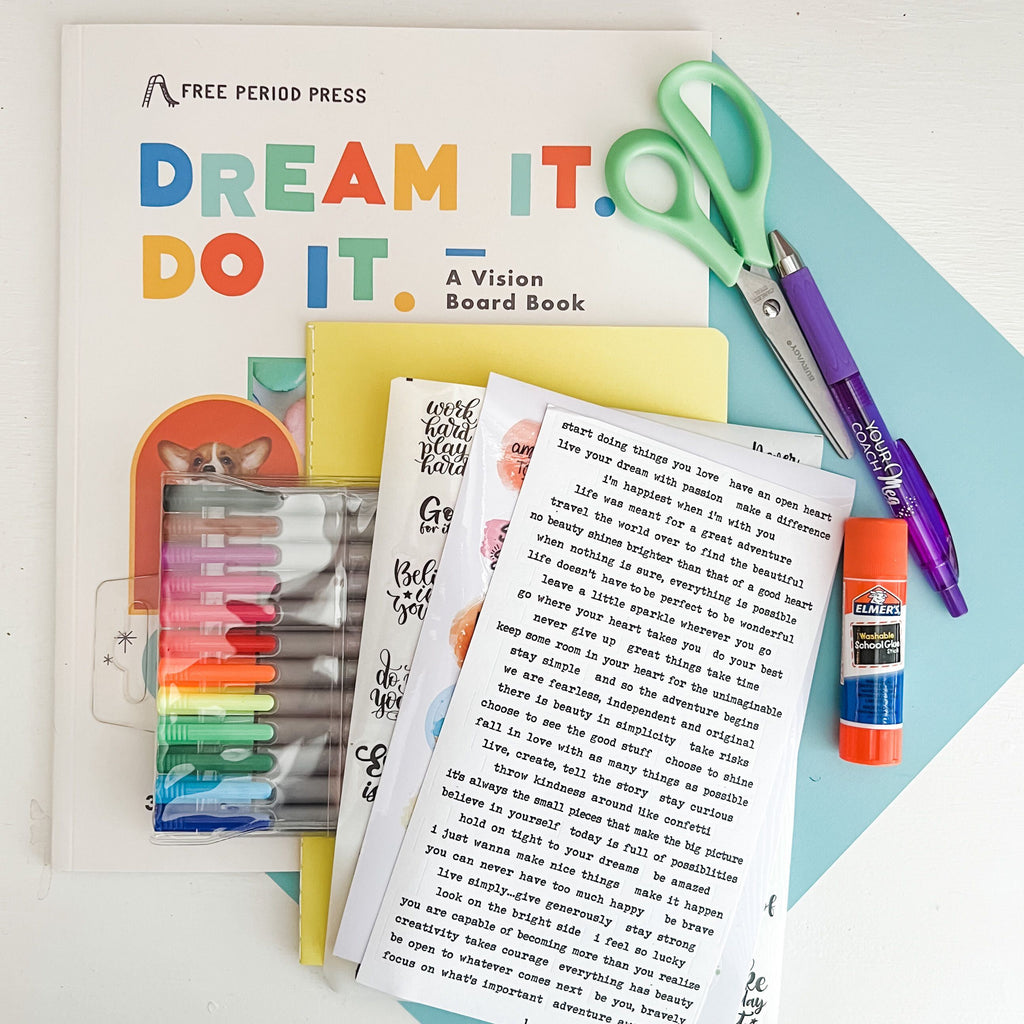 FREE PERIOD PRESS
DREAM IT.
DO IT.
A Vision
Board Book
BURVAGY®
YOUR Men
COACH
ELMER'S
Washable
School Glue
Stick
work
hard
play
hard
Go
for it
start doing things you love have an open heart
live your dream with passion make a difference
i'm happiest when i'm with you
life was meant for a great adventure
travel the world over to find the beautiful
no beauty shines brighter than that of a good heart
when nothing is sure, everything is possible
life doesn't have to be perfect to be wonderful
leave a little sparkle wherever you go
go where your heart takes you do your best
never give up great things take time
keep some room in your heart for the unimaginable
stay simple and so the adventure begins
we are fearless, independent and original
there is beauty in simplicity take risks
choose to see the good stuff choose to shine
fall in love with as many things as possible
live, create, tell the story stay curious
throw kindness around like confetti
it's always the small pieces that make the big picture
believe in yourself today is full of possiblities
hold on tight to your dreams be amazed
i just wanna make nice things make it happen
you can never have too much happy be brave
live simply...give generously stay strong
look on the bright side i feel so lucky
you are capable of becoming more than you realize
creativity takes courage everything has beauty
be open to whatever comes next be you, bravely
focus on what's important adventure